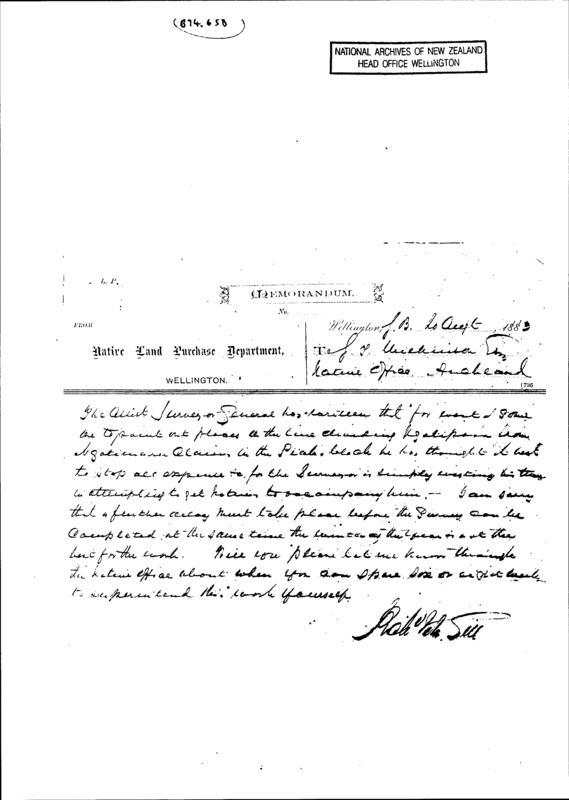 (B74.658)
NATIONAL ARCHIVES OF NEW ZEALAND
HEAD OFFICE WELLINGTON
L. P.
MEMORANDUM.
No.
FROM
Native Land Purchase Department,
WELLINGTON.
Wellington, 20 Augt 1883
To
Native Office Auckland
The Assist Surveyor General has written that "for want of some
one to point out places on the line dividing from
claims in the Piako block he has thought it best
to stop all expense for the Surveyor is simply wasting his time
in attempting to get natives to accompany him. — I am sorry
that a further delay must take place before the Survey can be
Completed at the same time the winter of the year is not the
best for the work. Will you please let me know through
the Native Office about when you can spare six or eight weeks
to superintend this work yourself